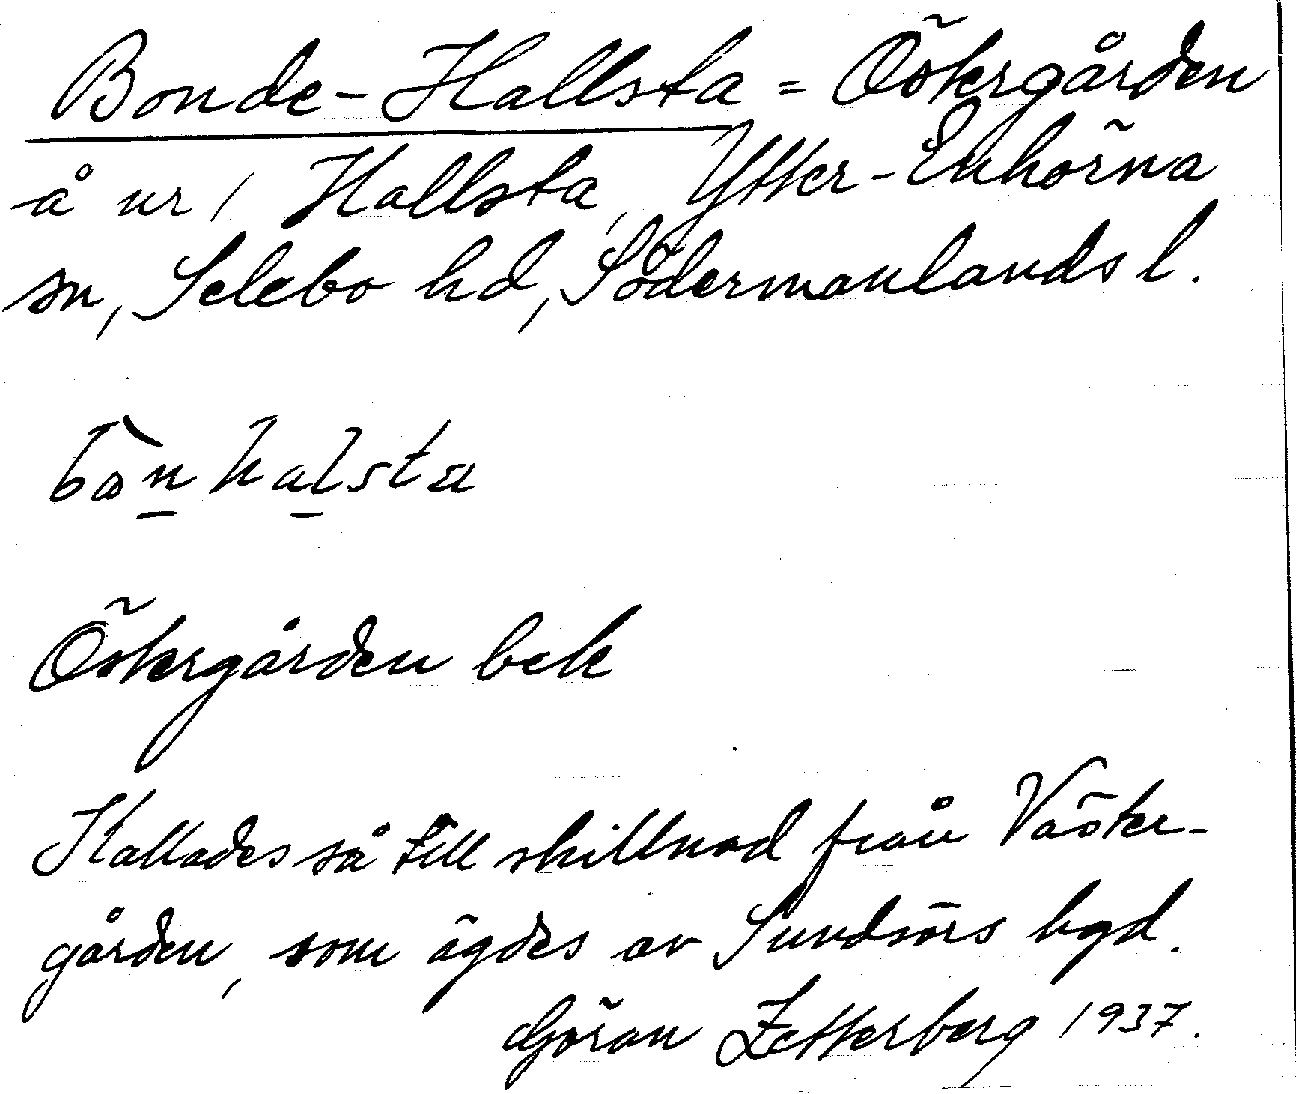 Bonde-Hallsta = Östergården
å nr 1 Hallsta, Ytter-Enhörna
sn, Selebo hd, Södermanlands l.
bo̊̀n halsta
Östergården bek
Kallades så till skillnad från Väster-
gården, som ägdes av Sundsörs hgd.
Göran Zetterberg 1937.